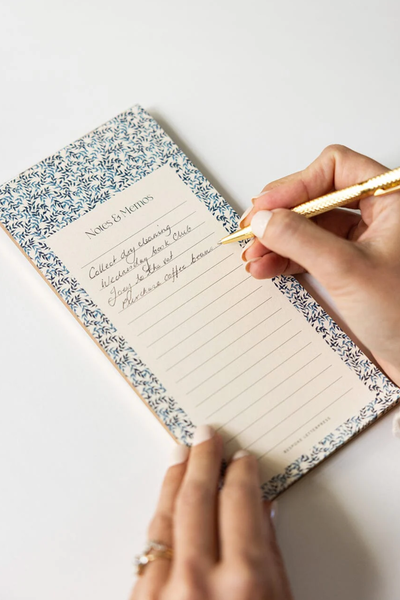 Notes & Memos
Collect dry cleaning
Wednesday book Club
Joey to the vet
Purchase coffee beans
BESPOKE LETTERPRESS